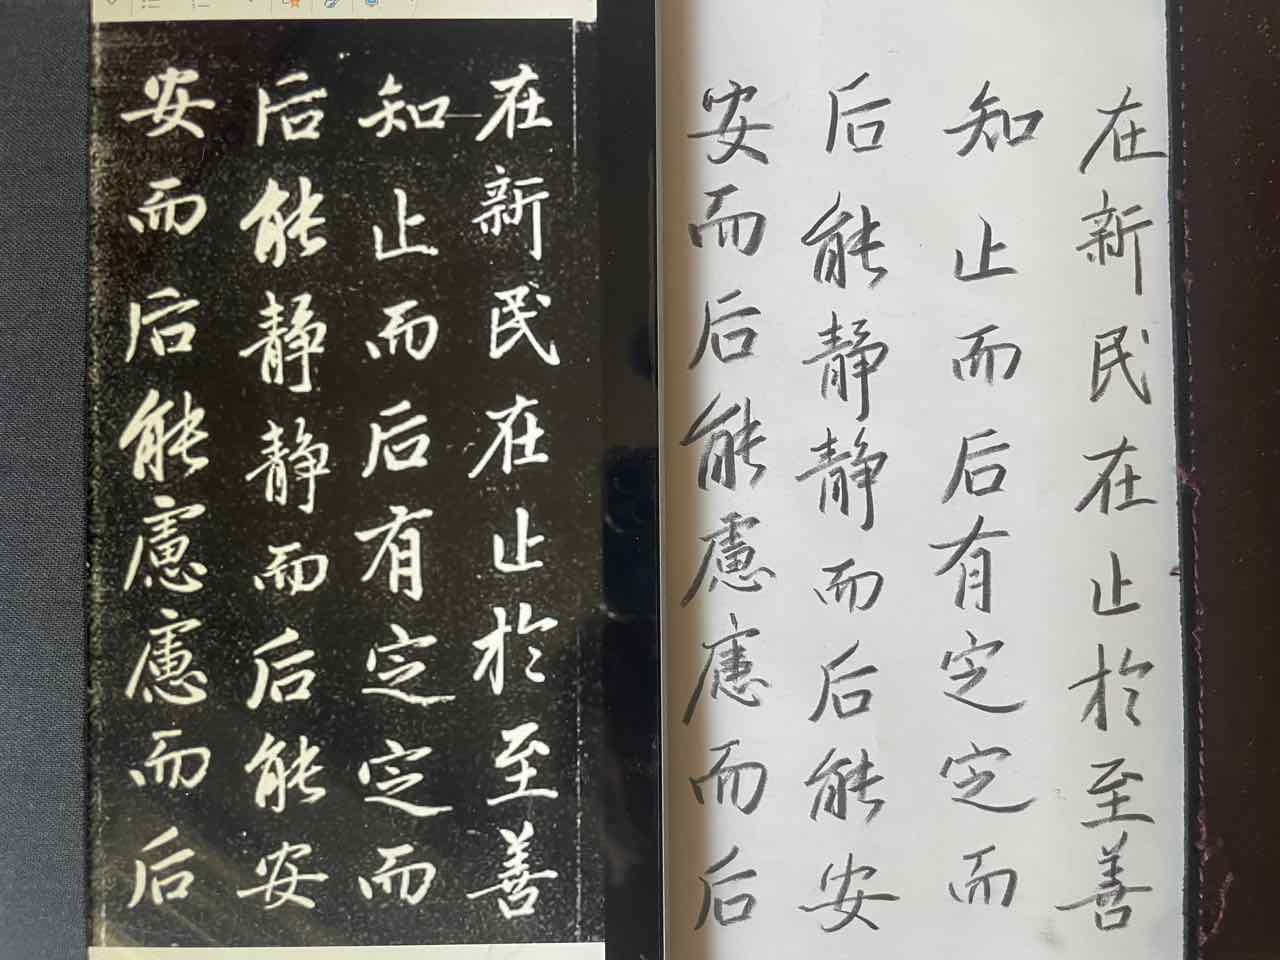 在新民在止於至善
知止而后有定定而
后能静静而后能安
安而后能慮慮而后
在新民在止於至善
知止而后有定定而
后能静静而后能安
安而后能慮慮而后